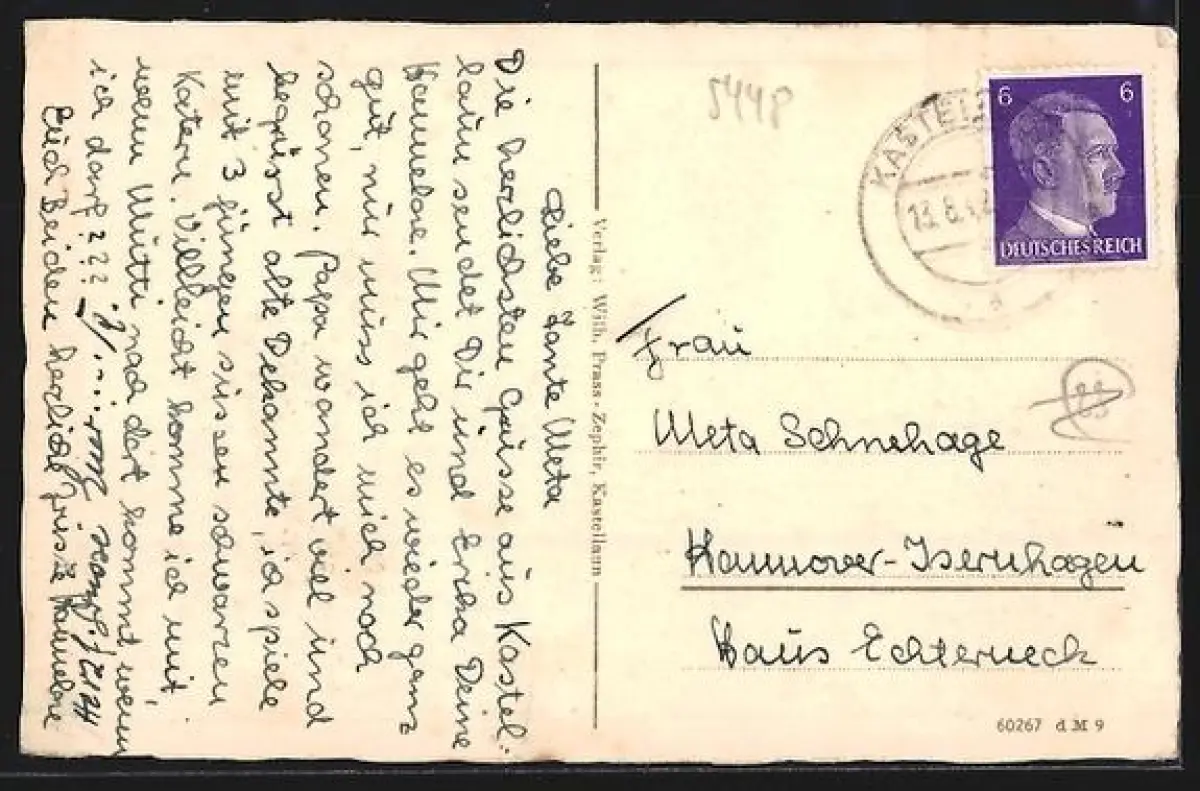 Liebe Tante Meta
Die herzlichsten Grüsse aus Kastel-
laun sendet Dir und Erika Deine
Hannelore. Mir geht es wieder ganz
gut, nur muss ich mich noch
schonen. Papa wandert viel und
begrüsst alte Bekannte, ich spiele
mit 3 jungen süssen schwarzen
Katern. Villleicht komme ich mit,
wenn Mutti nach dort kommt wenn
ich darf???
Euch Beiden herzliche Grüsse Hannelore
Verlag: Wilh. Prass-Zephir, Kastellaun
5448
KASTEL
13.8.4
a
6 6
DEUTSCHES REICH
Frau
Meta Schnehage
Hannover-Isernhagen
Haus Echterneck
60267 d M 9